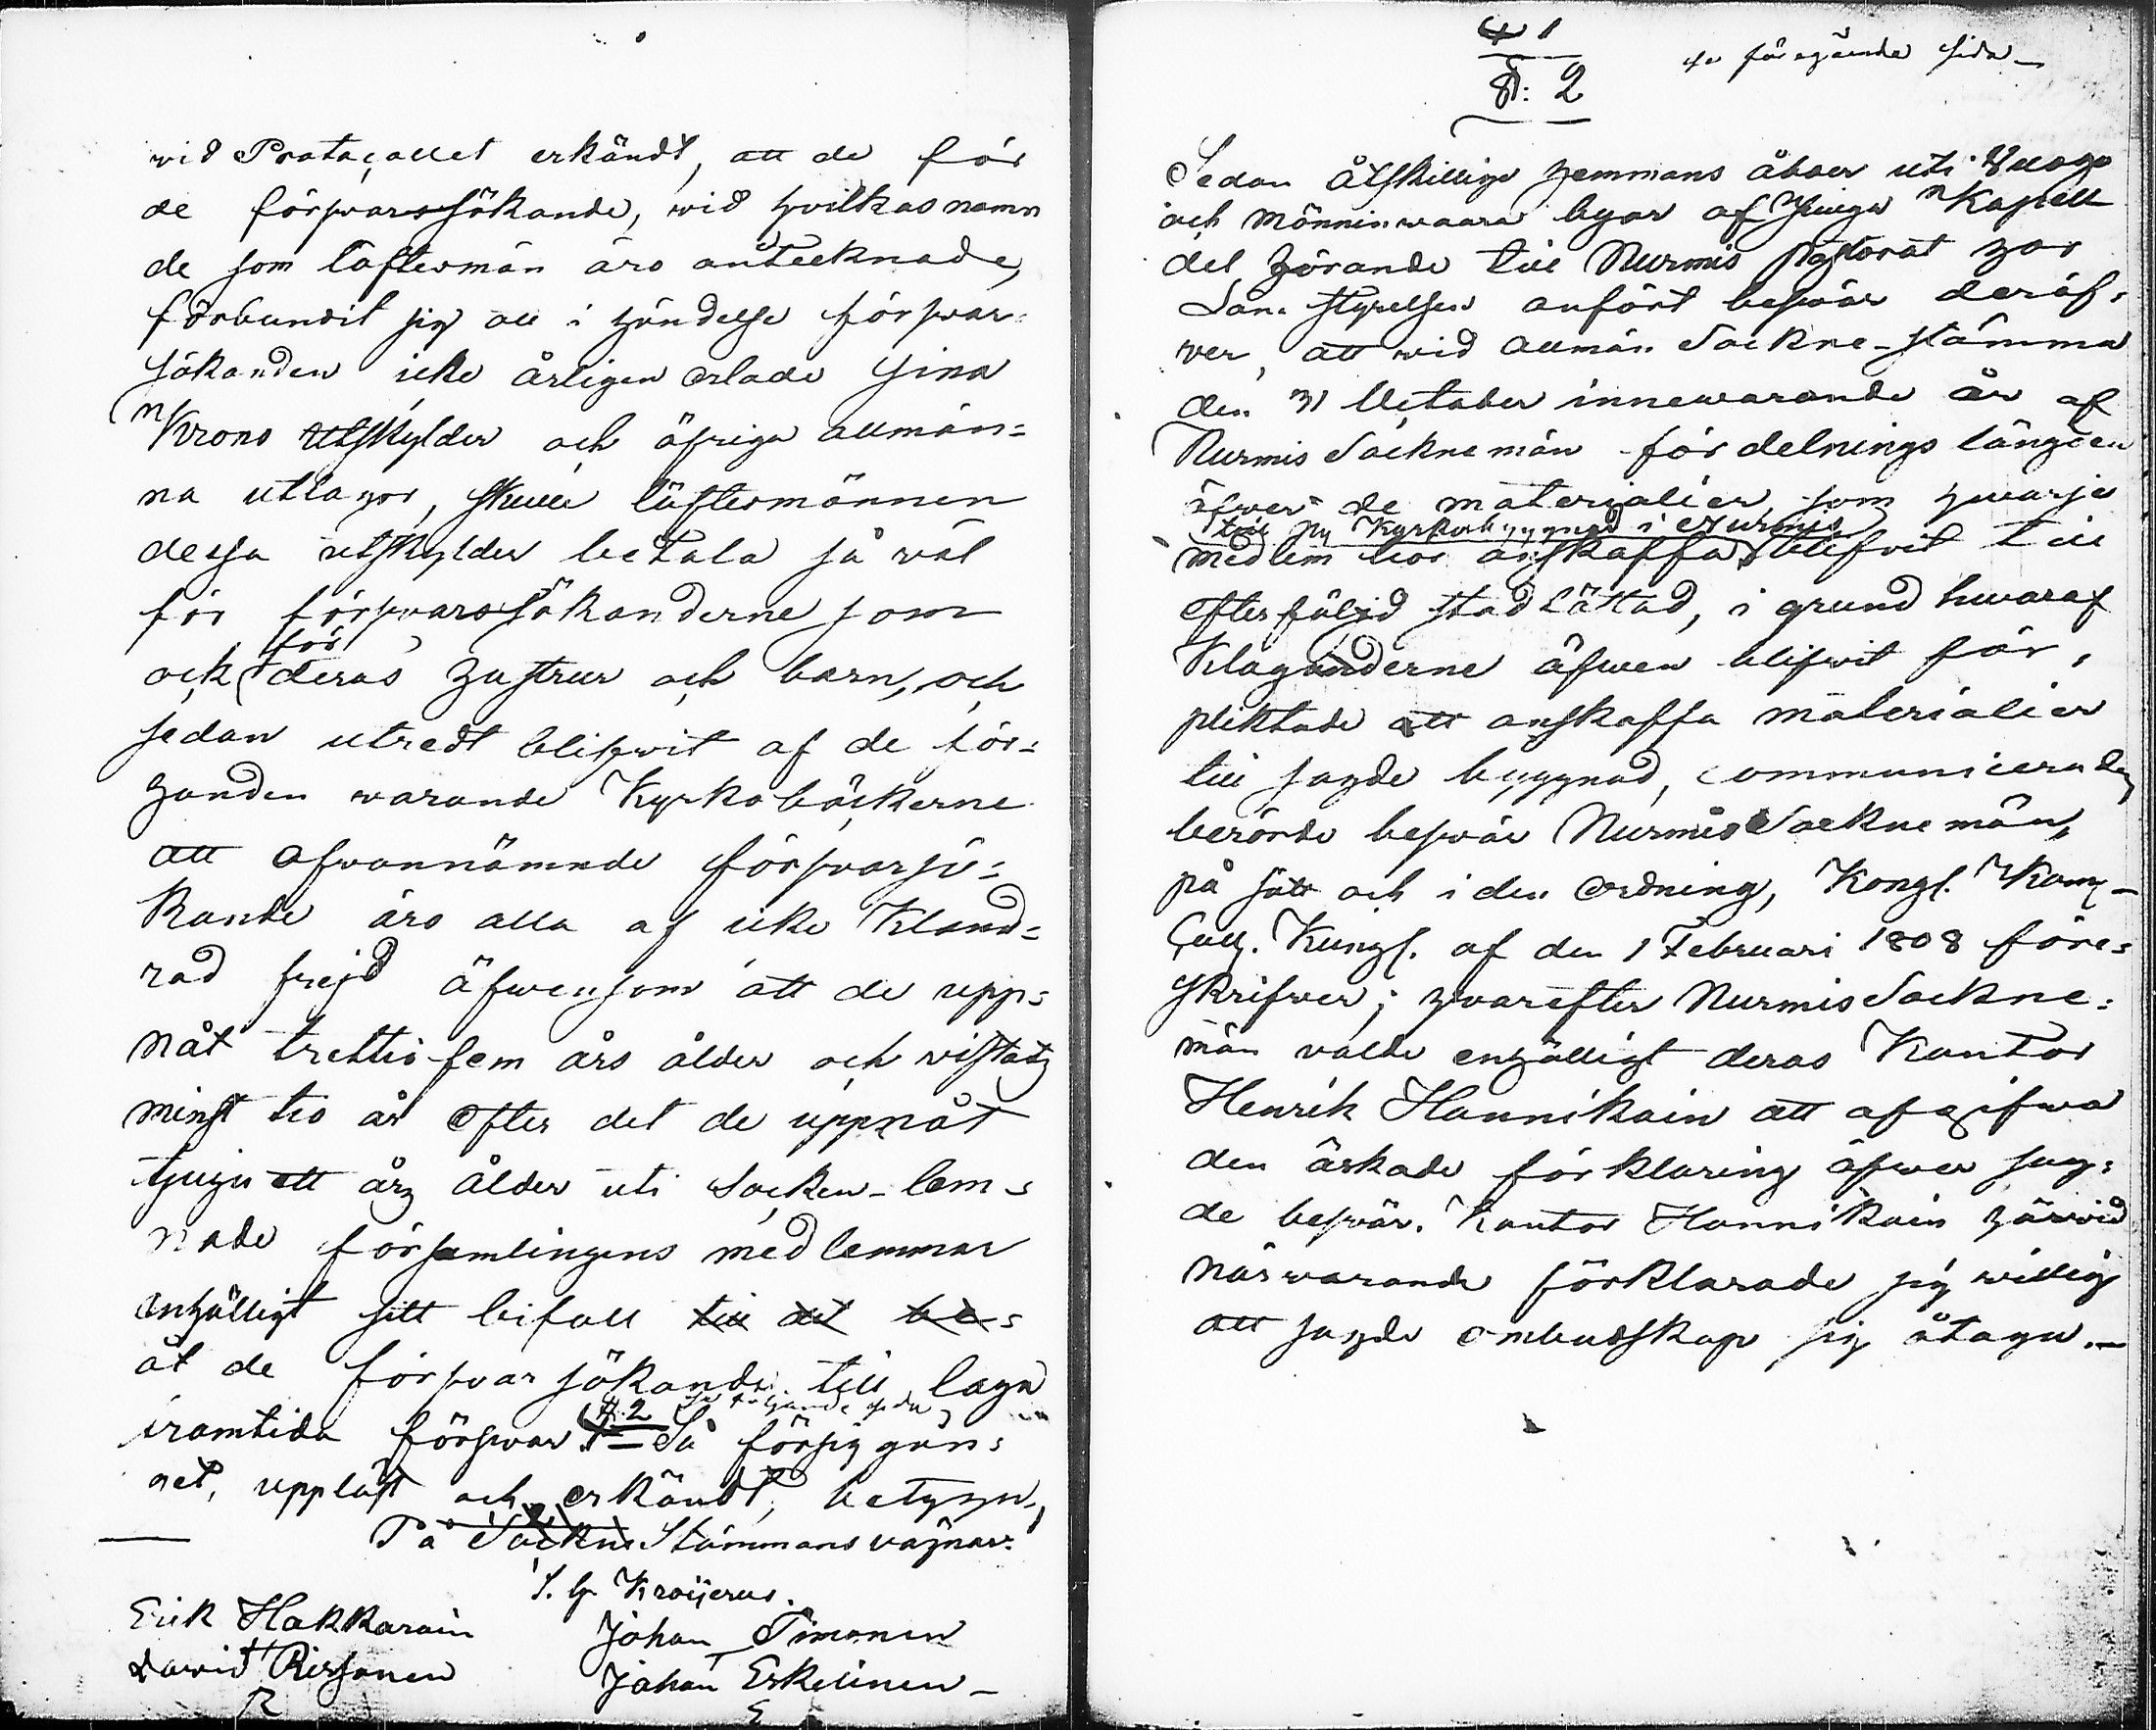 wid Protocollet erkändt, att de för
de förswarssökande, wid hwilkas namn
de som löftesmän äro antecknade,
förbundit sig att i händelse förswar-
sökanden icke årligen erlade sina
Krono utskylder och öfriga allmän=
na utlagor, skulle löftesmännen
dessa utskylder betala så väl
för förswarssökanderne som
för
ock deras hustrur och barn, och
sedan utredt blifwit af de för=
handen warande Kyrkoböckerne
att ofwannämnde förswarsö=
kande äro alla af icke kland=
rad frejd äfwensom att de upp=
nåt trettio fem års ålder och wistats
minst tio år efter det de uppnåt
tjugu ett års ålder uti Socken - lem=
nade församlingens medlemmar
enhälligt sitt bifall till det be=
åt de förswar sökande till laga
§ 2 se följande sida
framtida förswar. — Så försiggån=
get, uppläst och erkändt, betygar,
På Sockne Stämmans vägnar:
Krøijerus.
Erik Hakkarain Johan Timonen
Dawid Rissanen Johan Eskelinen —
R E
§ 1
se föregående sida —
§: 2
Sedan åtskillige hemmans åboer uti
och Mönninwaara byar af Juuga Kapell
det hörande till Nurmis pastorat hos
Läne styrelsen anfört beswär deröf=
wer, att wid allmän Sockne-stämma
den 31 October innewarande år af
Nurmis Socknemän fördelnings längden
öfwer de materialier, som hwarje
till ny Kyrkobyggnad i Nurmis
medlem bör anskaffa, blifwit till
efterföljd stadfästad, i grund hwaraf
Klaganderne äfwen blifwit för=
pliktade att anskaffa materialier
till sagde byggnad, communicerades
berörde beswär Nurmis Socknemän,
på sätt och i den ordning, Kongl. Kam-
Coll. Kungl. af den 1 Februari 1808 före=
skrifwer; hwarefter Nurmis Sockne=
män valde enhälligt deras Kantor
Henrik Hannikain att afgifwa
den äskade förklaring öfwer sag=
de beswär. Kantor Hannikain härwid
närwarande förklarade sig willig
att sagde ombudskap sig åtaga. —